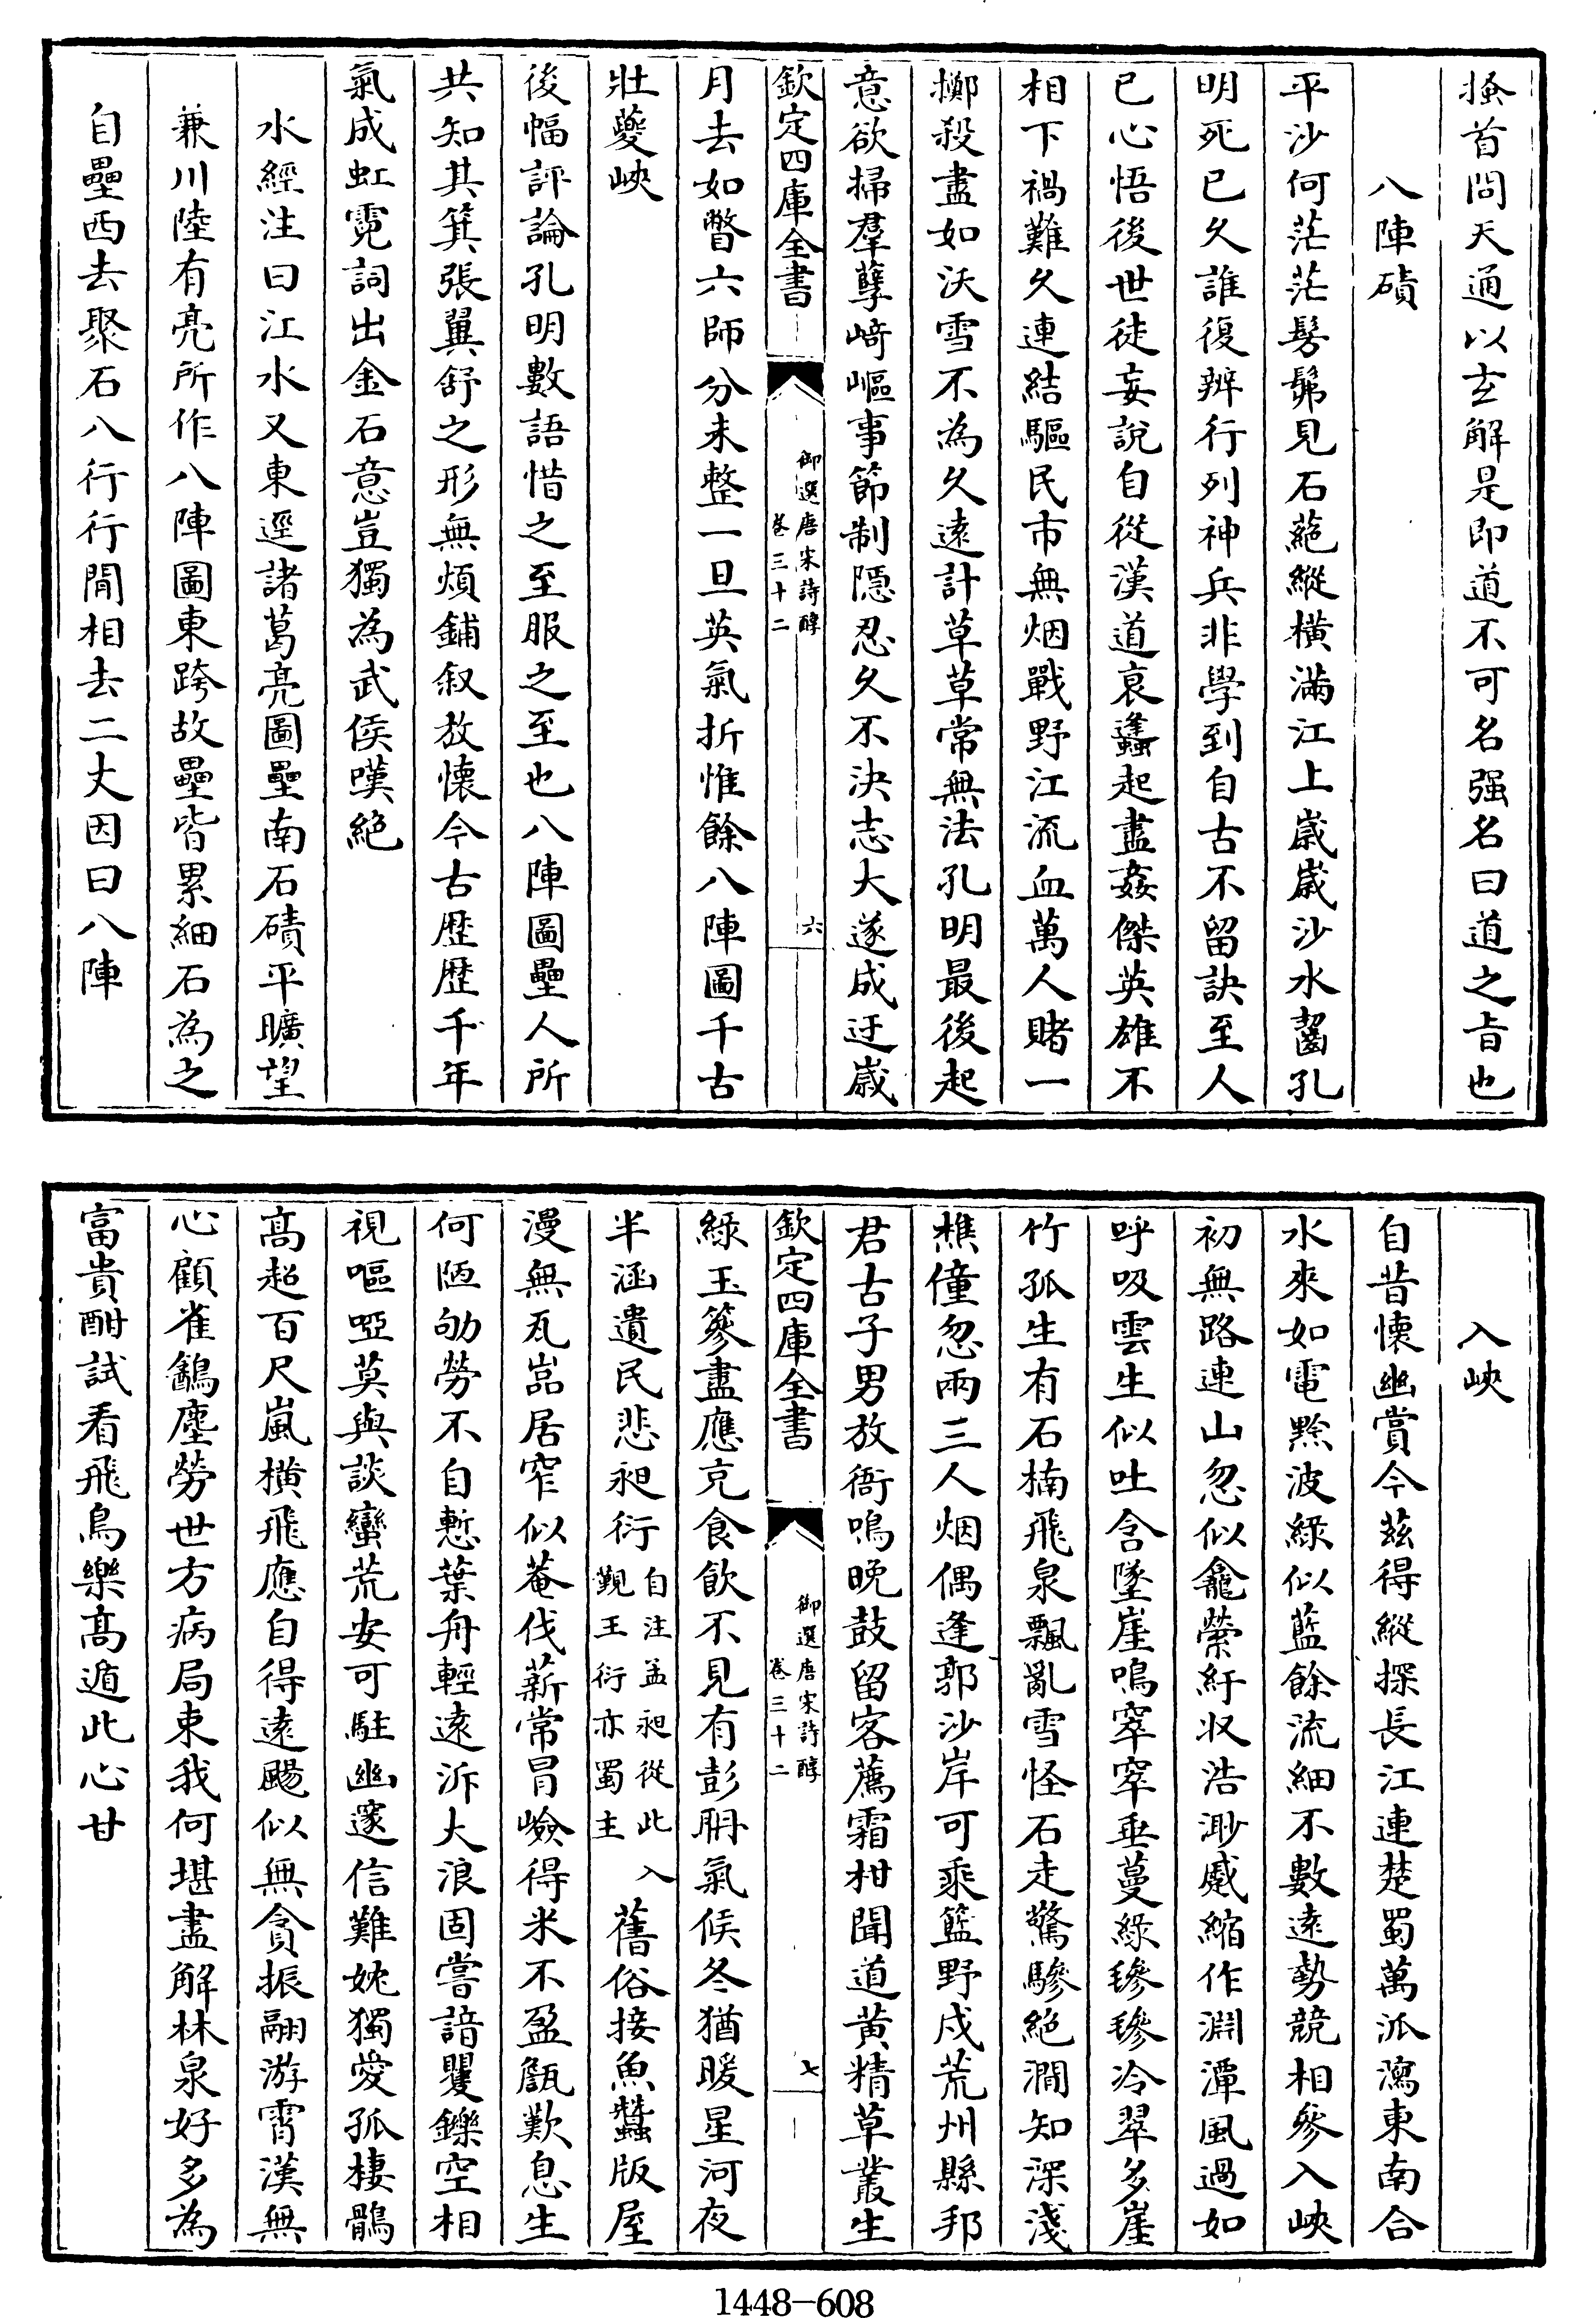 搔首問天通以玄解是即道不可名强名曰道之㫖也
八陣磧
平沙何茫茫髣髴見石蕝縱横滿江上歲歲沙水齧孔
明死已久誰復辨行列神兵非學到自古不留訣至人
已心悟後世徒妄說自從漢道衰蠭起盡姦傑英雄不
相下禍難久連結驅民市無烟戰野江流血萬人賭一
擲殺盡如沃雪不為久逺計草草常無法孔明最後起
意欲掃羣孽崎嶇事節制隠忍久不決志大遂成迂歲
欽定四庫全書
御選唐宋詩醇
卷三十二
六
月去如瞥六師分未整一旦英氣折惟餘八陣圖千古
壯䕫峽
後幅評論孔明數語惜之至服之至也八陣圖壘人所
共知其箕張翼舒之形無煩鋪叙放懐今古歴歴千年
氣成虹霓詞出金石意豈獨為武侯嘆絶
水經注曰江水又東逕諸葛亮圖壘南石磧平曠望
兼川陸有亮所作八陣圖東跨故壘皆累細石為之
自壘西去聚石八行行間相去二丈因曰八陣
入峽
自昔懐幽賞今兹得縱探長江連楚蜀萬派瀉東南合
水來如電黔波緑似藍餘流細不數逺勢競相參入峽
初無路連山忽似龕縈紆収浩渺蹙縮作淵潭風過如
呼吸雲生似吐含墜崖鳴窣窣垂蔓緑毿毿冷翠多崖
竹孤生有石楠飛泉飄亂雪怪石走驚驂絶澗知深淺
樵僮忽兩三人烟偶逢郭沙岸可乘籃野戍荒州縣邦
君古子男放衙鳴晚鼓留客薦霜柑聞道黄精草叢生
欽定四庫全書
御選唐宋詩醇
卷三十二
七
緑玉篸盡應充食飲不見有彭胹氣候冬猶暖星河夜
半涵遺民悲昶衍自注孟昶從此入覲王衍亦蜀主舊俗接魚蠶版屋
漫無瓦嵓居窄似菴伐薪常冒嶮得米不盈甔歎息生
何陋劬勞不自慙葉舟輕逺泝大浪固嘗諳矍鑠空相
視嘔啞莫與談蠻荒安可駐幽邃信難妉獨愛孤棲鶻
髙超百尺嵐横飛應自得逺颺似無貪振翮游霄漢無
心顧雀鷃塵勞世方病局束我何堪盡解林泉好多為
富貴酣試看飛鳥樂髙遁此心甘
1448—608